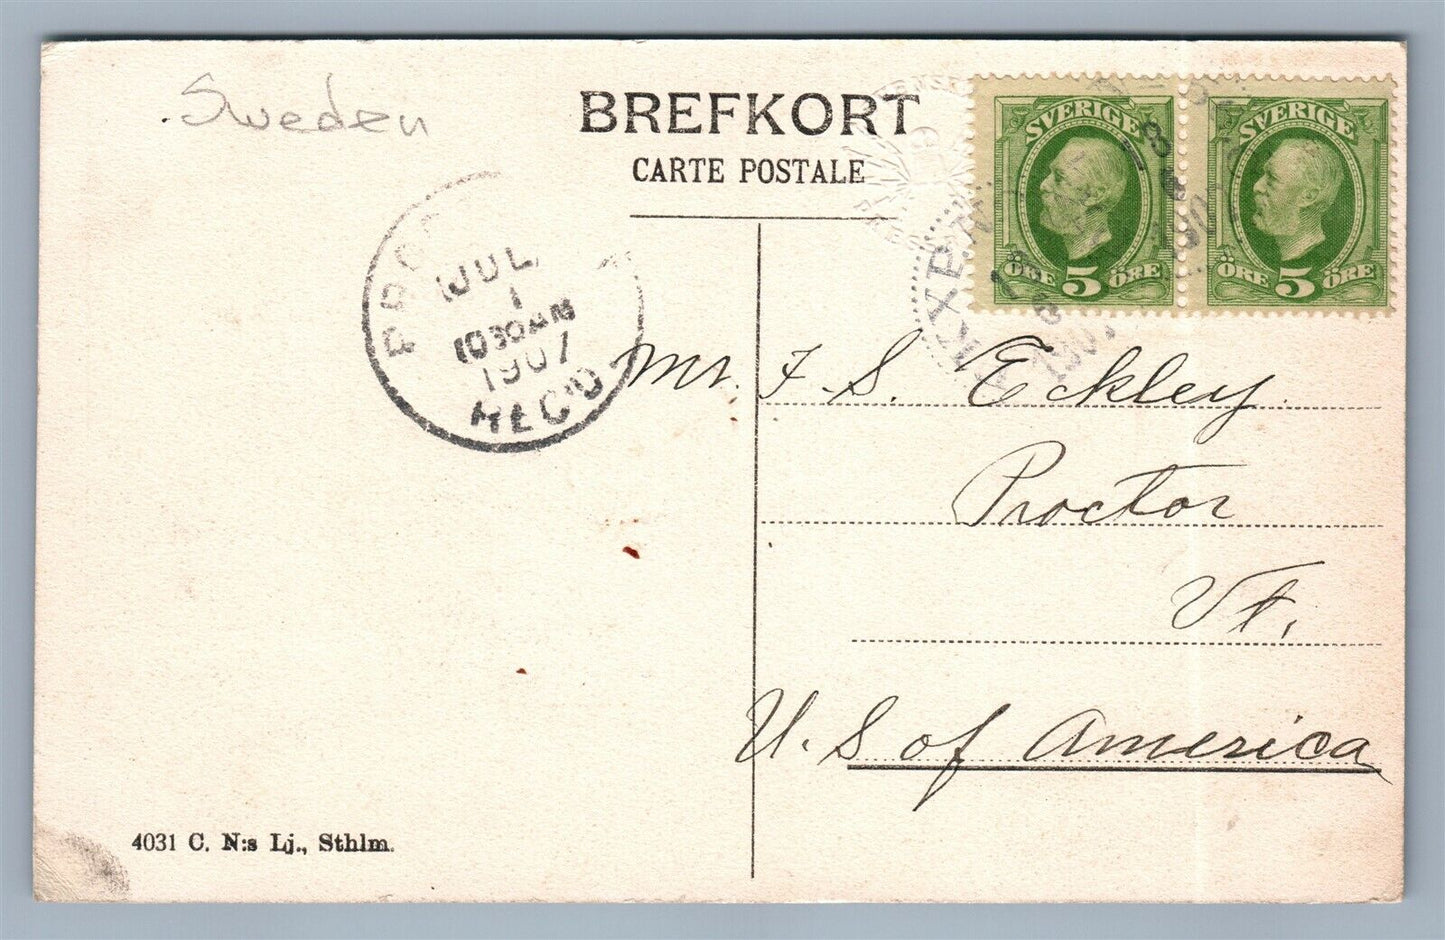 Sweden
BREFKORT
CARTE POSTALE
SVERIGE
ÖRE 5 ÖRE
SVERIGE
ÖRE 5 ÖRE
JUL
1
1030AM
1907
REC'D
Mr. F. S. Eckley
Proctor
Vt.
U. S of America
4031 C. N:s Lj., Sthlm.